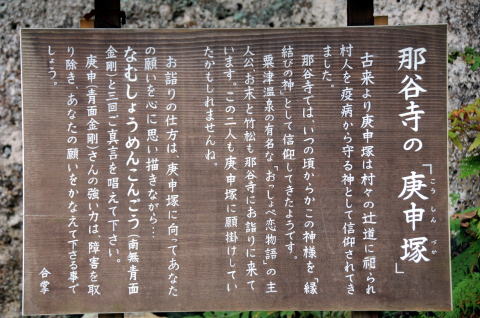 那谷寺の「庚申塚」
こうしん づか
古来より庚申塚は村々の辻道に祀られ
村人を疫病から守る神として信仰されてき
ました。
那谷寺では、いつの頃からかこの神様を「縁
結びの神」として信仰してきたようです。
粟津温泉の有名な「おっしょべ恋物語」の主
人公お末と竹松も那谷寺にお詣りに来て
います。この二人も庚申塚に願掛けしてい
たかもしれませんね。
お詣りの仕方は、庚申塚に向ってあなた
の願いを心に思い描きながら…
なむしょうめんこんごう(南無青面
金剛)と三回ご真言を唱えて下さい。
庚申(青面金剛)さんの強い力は、障害を取
り除き、あなたの願いをかなえて下さる事で
しょう。
合掌